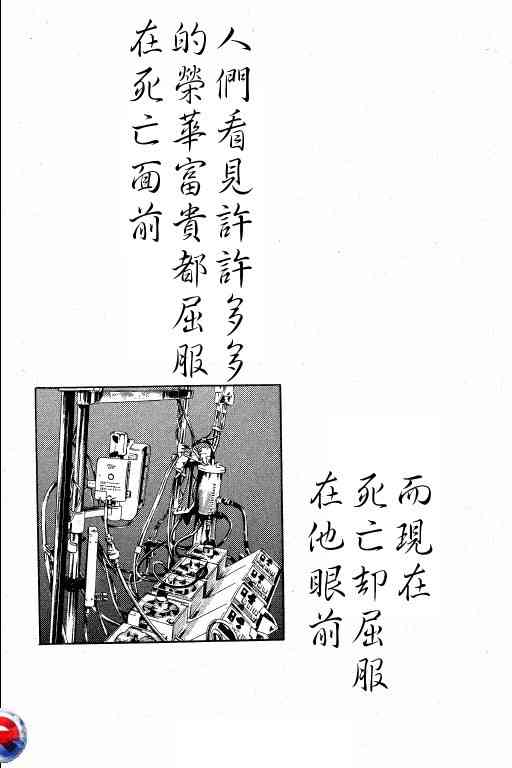 人們看見許許多多
的榮華富貴都屈服
在死亡面前
而現在
死亡却屈服
在他眼前